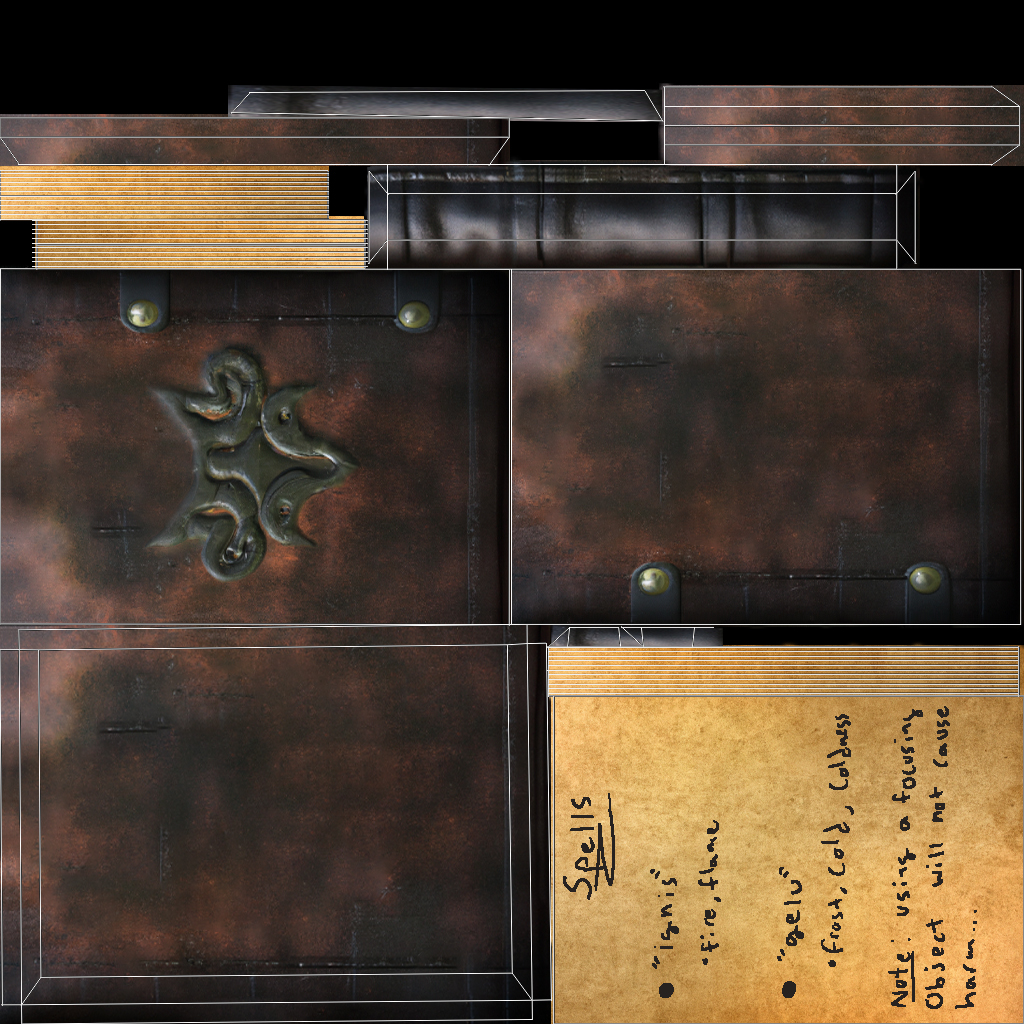 Spells
• "ignis"
• fire, flame
• "gelu"
• frost, cold, coldness
Note: using a focusing
Object will not cause
harm...